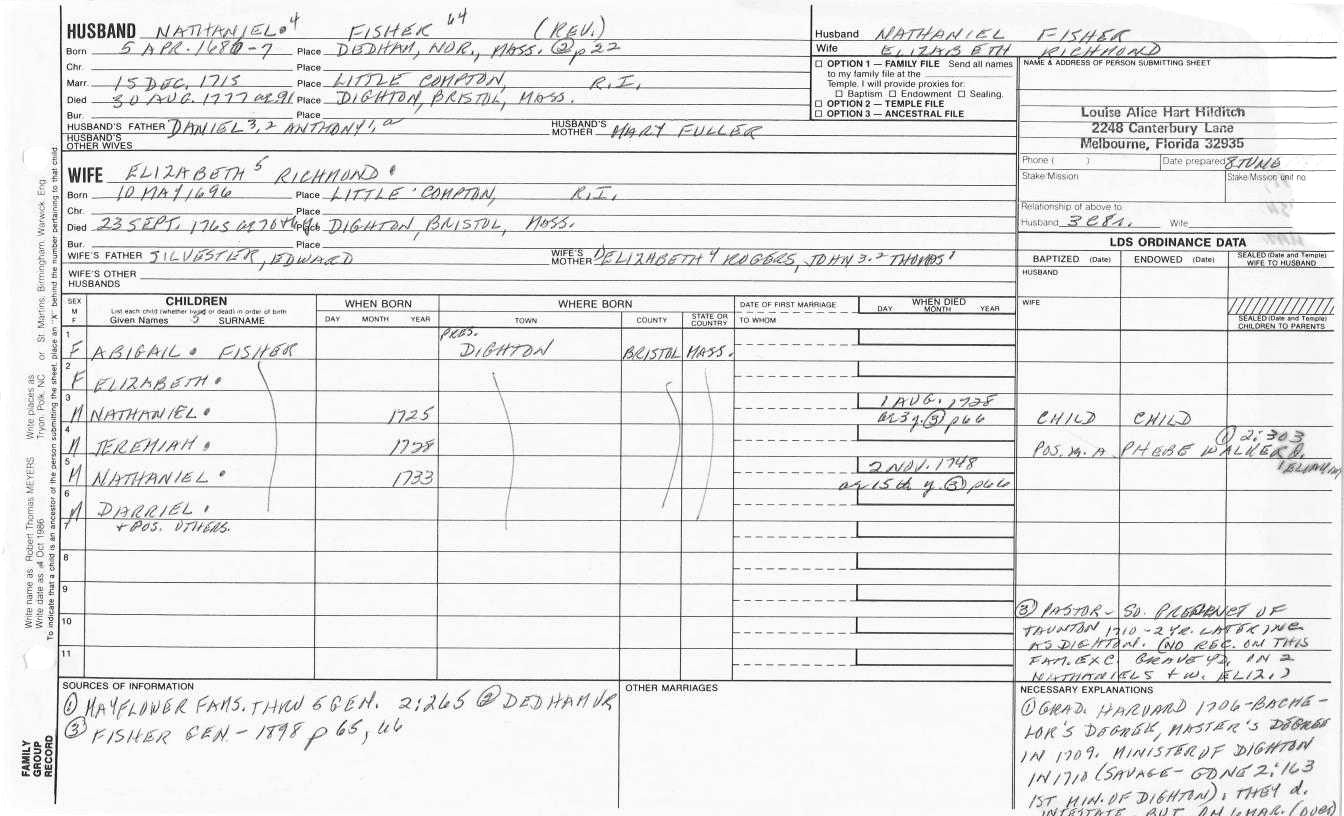 HUSBAND NATHANIEL 4 FISHER 64 (REV.)
Born 5 APR. 1686-7 Place DEDHAM, NOR., MASS. ② p 22
Chr. Place
Marr. 15 DEC. 1715 Place LITTLE COMPTON, R.I.
Died 30 AUG. 1777 ae 91 Place DIGHTON, BRISTOL, MASS.
Bur. Place
HUSBAND'S FATHER DANIEL 3, 2 ANTHONY 1, a HUSBAND'S MOTHER MARY FULLER
HUSBAND'S OTHER WIVES
WIFE ELIZABETH 5 RICHMOND
Born 10 MAY 1696 Place LITTLE COMPTON, R.I.
Chr. Place
Died 23 SEPT. 1765 Place DIGHTON, BRISTOL, MASS.
Bur. Place
WIFE'S FATHER SILVESTER, EDWARD WIFE'S MOTHER ELIZABETH 4 ROGERS, JOHN 3, 2 THOMAS 1
WIFE'S OTHER HUSBANDS
Husband NATHANIEL FISHER
Wife ELIZABETH RICHMOND
☐ OPTION 1 — FAMILY FILE Send all names
to my family file at the
Temple. I will provide proxies for:
☐ Baptism ☐ Endowment ☐ Sealing.
☐ OPTION 2 — TEMPLE FILE
☐ OPTION 3 — ANCESTRAL FILE
NAME & ADDRESS OF PERSON SUBMITTING SHEET
Louise Alice Hart Hilditch
2248 Canterbury Lane
Melbourne, Florida 32935
Phone ( ) Date prepared 8 JUNE
Stake/Mission Stake/Mission unit no.
Relationship of above to:
Husband Wife
LDS ORDINANCE DATA
BAPTIZED (Date) ENDOWED (Date) SEALED (Date and Temple) WIFE TO HUSBAND
HUSBAND
WIFE
SEALED (Date and Temple) CHILDREN TO PARENTS
SEX M F
CHILDREN
List each child (whether living or dead) in order of birth
Given Names 5 SURNAME
WHEN BORN
DAY MONTH YEAR
WHERE BORN
TOWN COUNTY STATE OR COUNTRY
DATE OF FIRST MARRIAGE
TO WHOM
WHEN DIED
DAY MONTH YEAR
1 F ABIGAIL FISHER PRES. DIGHTON BRISTOL MASS.
2 F ELIZABETH
3 M NATHANIEL 1725 1 AUG. 1728 ae 3 y. ③ p 66 CHILD CHILD
4 M JEREMIAH 1728 POS. M. A PHEBE WALKER ① 2:303
5 M NATHANIEL 1733 2 NOV. 1748 ae 15th y. ③ p 66
6 M DARRIEL
7 + POS. OTHERS.
8
9
10
11
③ PASTOR - SO. PRECINCT OF
TAUNTON 1710 - 2 YR. LATER INC
AS DIGHTON. (NO REC. ON THIS
FAM. EXC. GRAVE YD. ON 2
NATHANIELS + W. ELIZ.)
SOURCES OF INFORMATION
① MAYFLOWER FAMS. THRU 5 GEN. 2:265 ② DEDHAM VR
③ FISHER GEN - 1898 p 65, 66
OTHER MARRIAGES
NECESSARY EXPLANATIONS
① GRAD. HARVARD 1706 - BACHE-
LOR'S DEGREE, MASTER'S DEGREE
IN 1709. MINISTER OF DIGHTON
IN 1710 (SAVAGE - 2:163
1ST MIN. OF DIGHTON), THEY d.
INTESTATE (OVER)
Write name as Robert Thomas MEYERS Write places as Tryon, Polk, NC or St. Martins, Birmingham, Warwick, Eng.
Write date as 4 Oct 1986
To indicate that a child is an ancestor of the person submitting the sheet, place an "X" behind the number pertaining to that child.
FAMILY
GROUP
RECORD